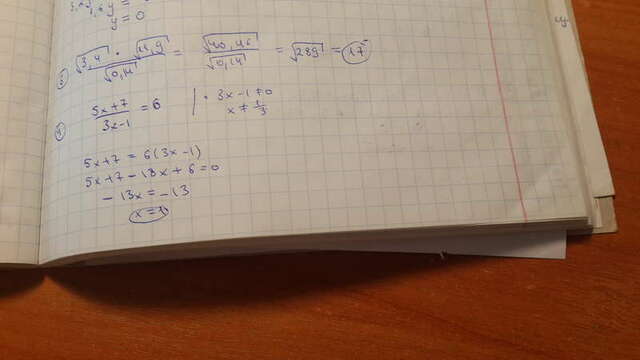 y = 0
③ √3,4 · √11,9 / √0,14 = √40,46 / √0,14 = √289 = 17
④ (5x+7)/(3x-1) = 6 | · 3x-1≠0
x ≠ 1/3
5x+7 = 6(3x-1)
5x+7-18x+6=0
-13x = -13
x=1